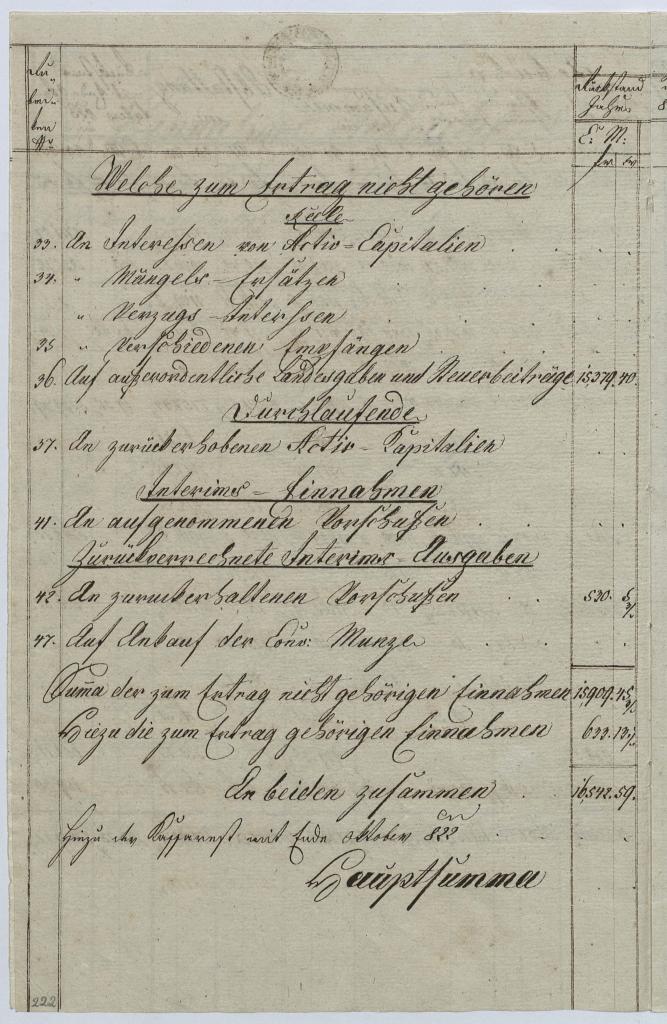 Rubri-
ken
Nr
Rückstand
Jahres
C: M:
fr xr
Welche zum Ertrag nicht gehören
Reele
33. An Interessen von Activ-Capitalien
34. " Mängels-Ersätzen
" Verzugs-Interssen
35 " Verschiedenen Empfängen
36. Auf außerordentliche Landesgaben und Steuerbeiträge 15379.40.
Durchlaufende
37. An zurückerhobenen Activ-Kapitalien
Interims-Einnahmen
41. An aufgenommenen Vorschußen
Zurückverrechnete Interims-Ausgaben
42. An zurückerhaltenen Vorschußen 530. 5
47. Auf Ankauf der Conv: Munze
Summa der zum Ertrag nicht gehörigen Einnahmen 15,909.45
Hiezu die zum Ertrag gehörigen Einnahmen 633.13
An beiden zusammen 16,542.59.
Hiezu der Kassarest mit Ende Oktober 822
Hauptsumma
222